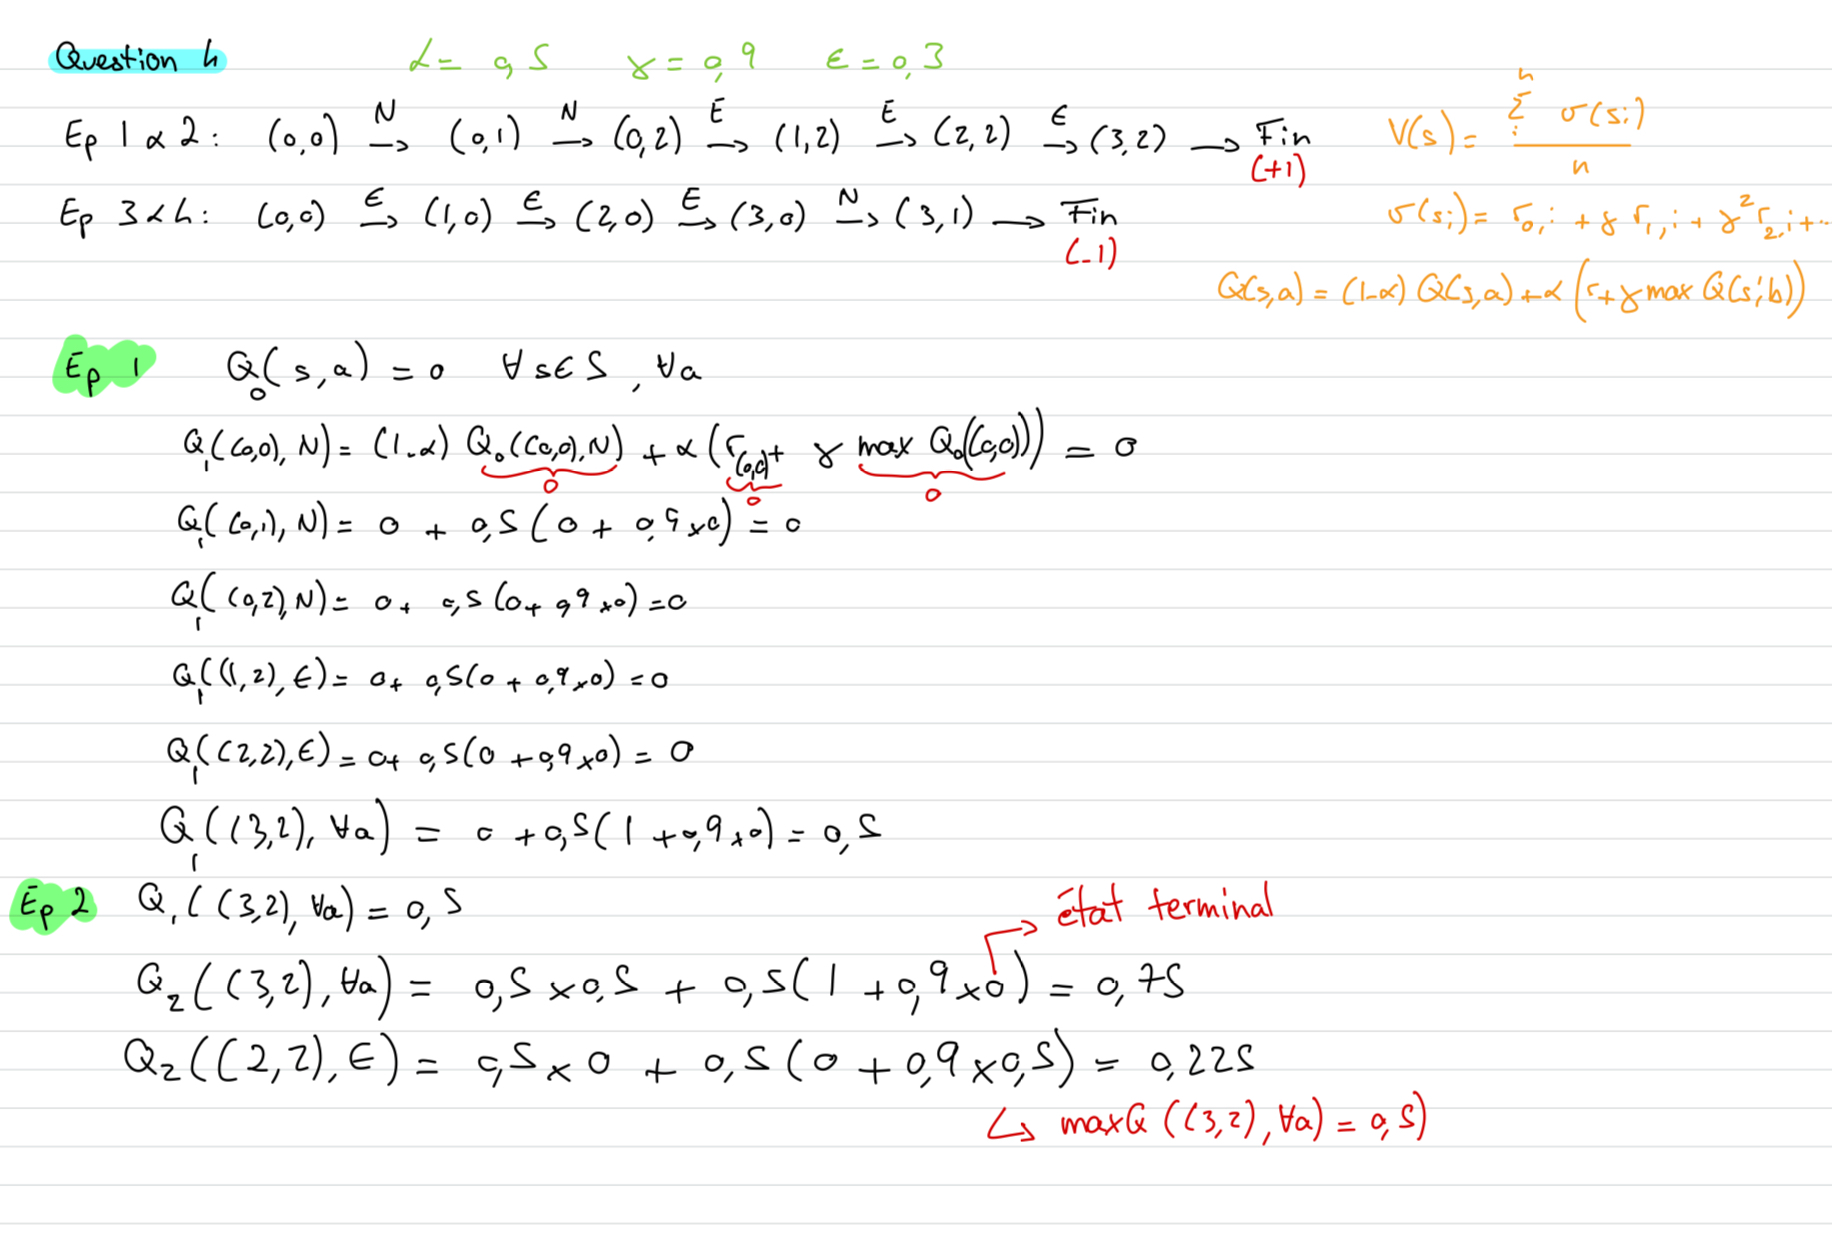 Question 4   α = 0,5   γ = 0,9   ε = 0,3
Ep 1 & 2 : (0,0) →N (0,1) →N (0,2) →E (1,2) →E (2,2) →E (3,2) → Fin (+1)
V(s) = Σ_i^n σ(s_i) / n
Ep 3 & 4 : (0,0) →E (1,0) →E (2,0) →E (3,0) →N (3,1) → Fin (-1)
σ(s_i) = r_{0,i} + γ r_{1,i} + γ² r_{2,i} + ...
Q(s,a) = (1-α) Q(s,a) + α (r + γ max Q(s',b))
Ep 1   Q_0(s,a) = 0   ∀ s ∈ S , ∀a
Q_1((0,0), N) = (1-α) Q_0((0,0),N) + α (r_(0,0) + γ max Q_0((0,0))) = 0
0   0   0
Q_1((0,1), N) = 0 + 0,5 (0 + 0,9 × 0) = 0
Q_1((0,2), N) = 0 + 0,5 (0 + 0,9 × 0) = 0
Q_1((1,2), E) = 0 + 0,5 (0 + 0,9 × 0) = 0
Q_1((2,2), E) = 0 + 0,5 (0 + 0,9 × 0) = 0
Q_1((3,2), ∀a) = 0 + 0,5 (1 + 0,9 × 0) = 0,5
Ep 2   Q_1((3,2), ∀a) = 0,5
→ état terminal
Q_2((3,2), ∀a) = 0,5 × 0,5 + 0,5 (1 + 0,9 × 0) = 0,75
Q_2((2,2), E) = 0,5 × 0 + 0,5 (0 + 0,9 × 0,5) = 0,225
↳ max Q ((3,2), ∀a) = 0,5)